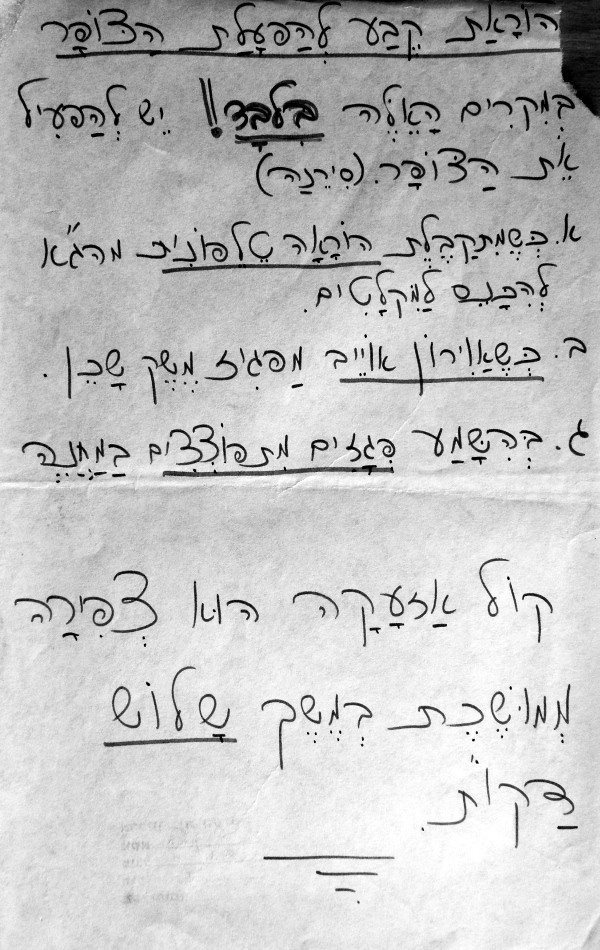 הוֹרָאַת קֶבַע לְהַפְעָלַת הַצּוֹפָר
בְּמִקְרִים הָאֵלֶּה בִּלְבַד!! יֵשׁ לְהַפְעִיל
אֶת הַצּוֹפָר. (סִירֵנָה)
א. כְּשֶׁמִתְקַבֶּלֶת הוֹרָאָה טֶלֶפוֹנִית מהג"א
לְהִכָּנֵס לַמִּקְלָטִים.
ב. כְּשֶׁאֲוִירוֹן אוֹיֵיב מַפְגִיז מֶשֶׁק שָׁכֵן.
ג. בְּהִשָּׁמַע פְּגָזִים מִתְפּוֹצְצִים בַּמַחֲנֶה
קוֹל אַזְעָקָה הוּא צְפִירָה
מְמוּשֶׁכֶת בְּמֶשֶׁךְ שָׁלוֹשׁ
דַּקּוֹת.